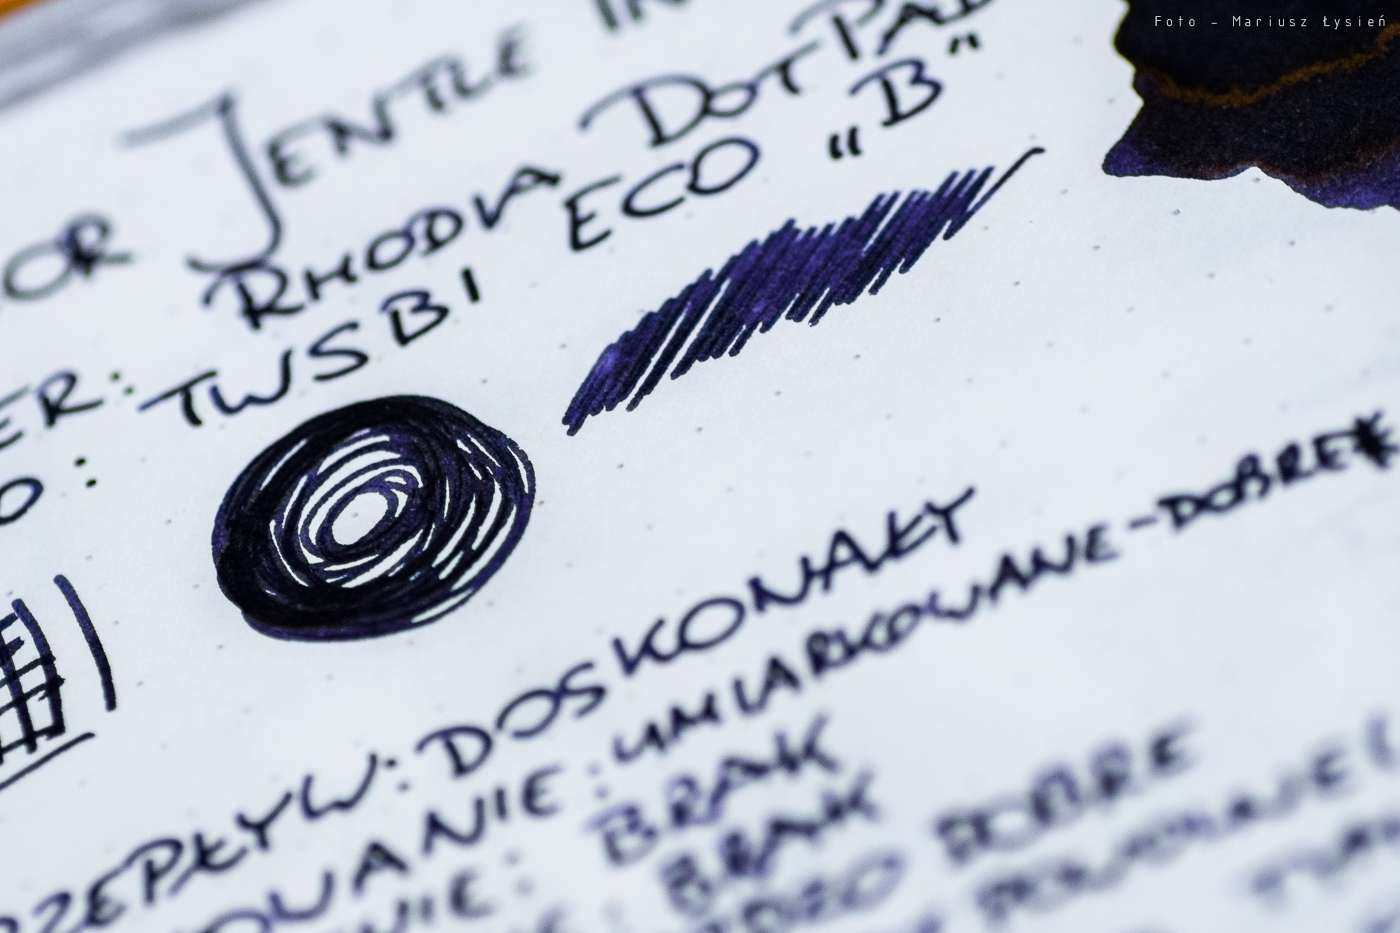 Foto - Mariusz Łysień
OR JENTLE IN
RHODIA DOTPAD
ER: TWSBI ECO "B"
O:
RZEPŁYW: DOSKONAŁY
OWANIE: UMIARKOWANE-DOBRE*
WNIE: BRAK
BRAK
DOBRE